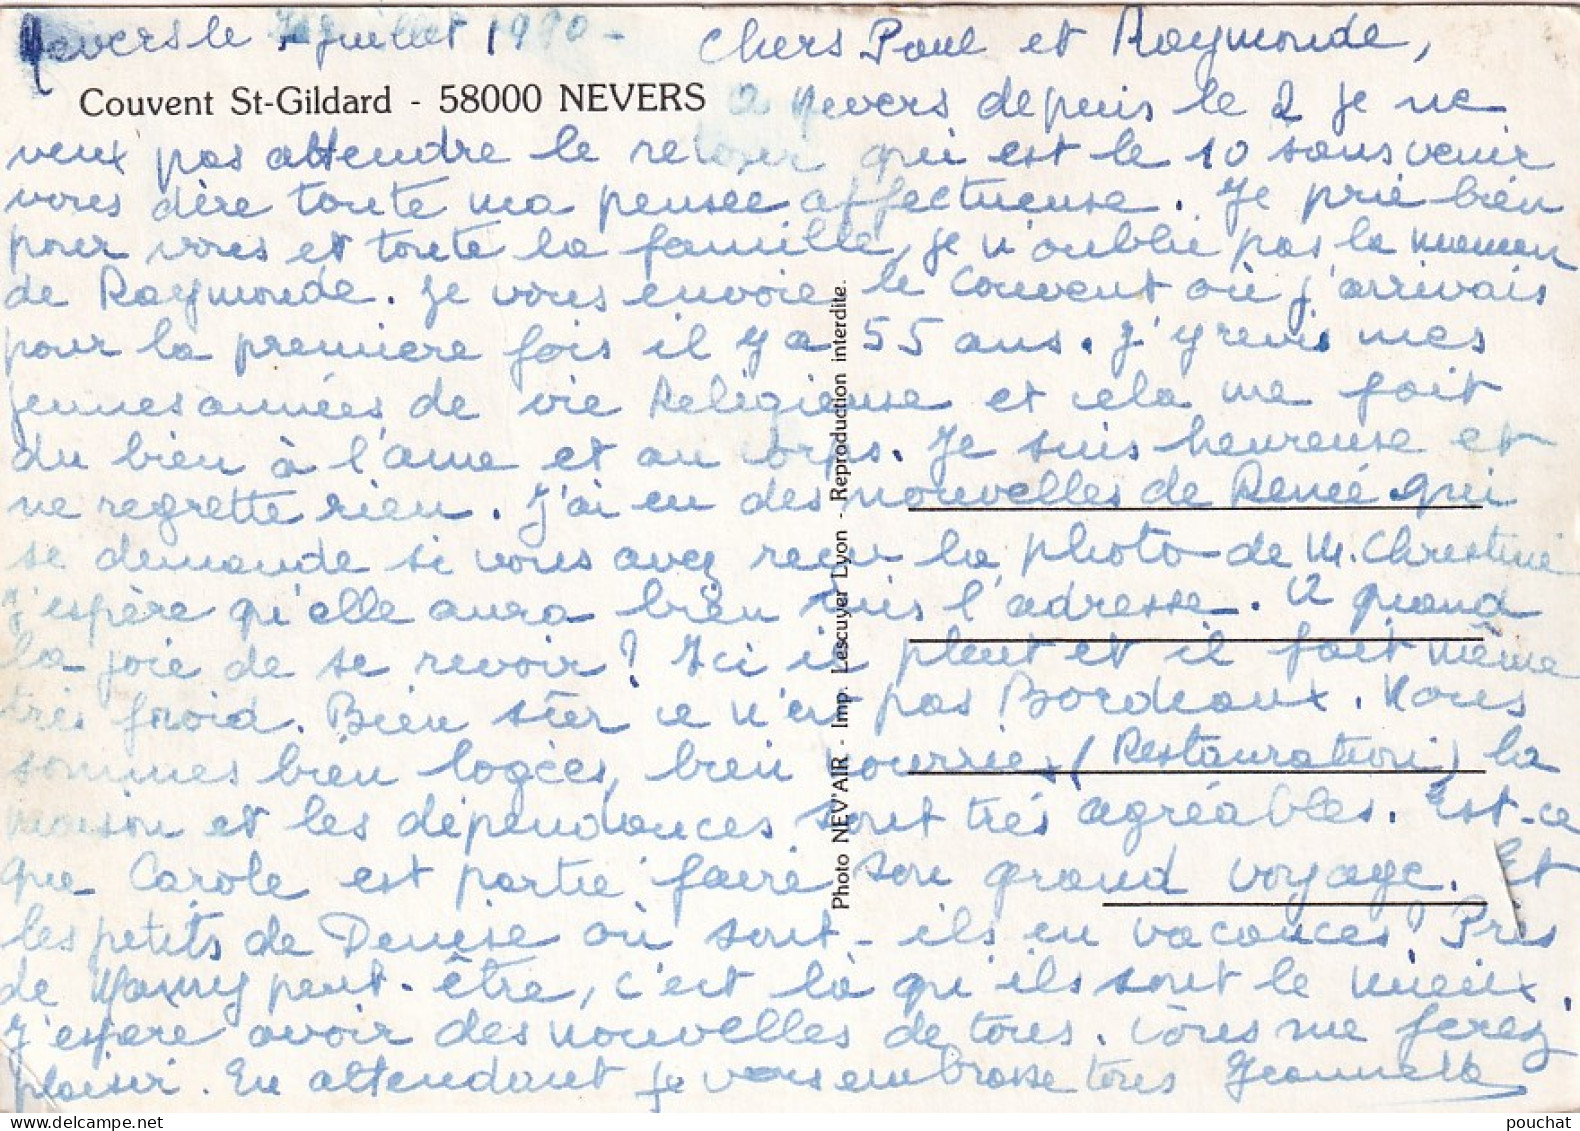 Nevers le juillet 1990 - Chers Paul et Raymonde,
Couvent St-Gildard - 58000 NEVERS
a Nevers depuis le 2 je ne
veux pas attendre le retour qui est le 10 sans venir
vous dire toute ma pensee affectueuse. Je prie bien
pour vous et toute la famille, je n'oublie pas la maman
de Raymonde. Je vous envoie le Couvent où j'arrivais
pour la premiere fois il y a 55 ans. J'y revis mes
jeunes années de vie Religieuse et cela me fait
du bien à l'ame et au corps. Je suis heureuse et
ne regrette rien. J'ai eu des nouvelles de Renée qui
se demande si vous avez reçu la photo de M. Christine
J'espère qu'elle aura bien mis l'adresse. A quand
la joie de se revoir? Ici il pleut et il fait même
très froid. Bien sûr ce n'est pas Bordeaux. Nous
sommes bien logées, bien nourries (Restauration) la
maison et les dépendances sont très agréables. Est-ce
que Carole est partie faire son grand voyage. Et
les petits de Denise où sont-ils en vacances? Près
de Mamy peut-être, c'est là qu'ils sont le mieux.
J'espère avoir des nouvelles de tous. Vous me ferez
plaisir. En attendant je vous embrasse tous Jeannette
Photo NEV'AIR - Imp. Lescuyer Lyon - Reproduction interdite.
pouchat
delcampe.net